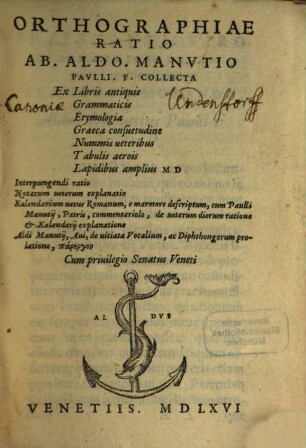 ORTHOGRAPHIAE
RATIO
AB. ALDO. MANVTIO
PAVLLI. F. COLLECTA
Ex Libris antiquis
Canoniæ
Grammaticis
Etymologia
Graeca consuetudine
Nummis ueteribus
Tabulis aereis
Lapidibus amplius M D
Interpungendi ratio
Notarum ueterum explanatio
Kalendarium uetus Romanum, e marmore descriptum, cum Paulli
Manutij, Patris, commentariolo, de ueterum dierum ratione
& Kalendarij explanatione
Aldi Manutij, Aui, de uitiata Vocalium, ac Diphthongorum pro-
latione, πάρεργον
Cum priuilegio Senatus Veneti
AL DVS
Bayerische
Staatsbibliothek
München
VENETIIS. MDLXVI